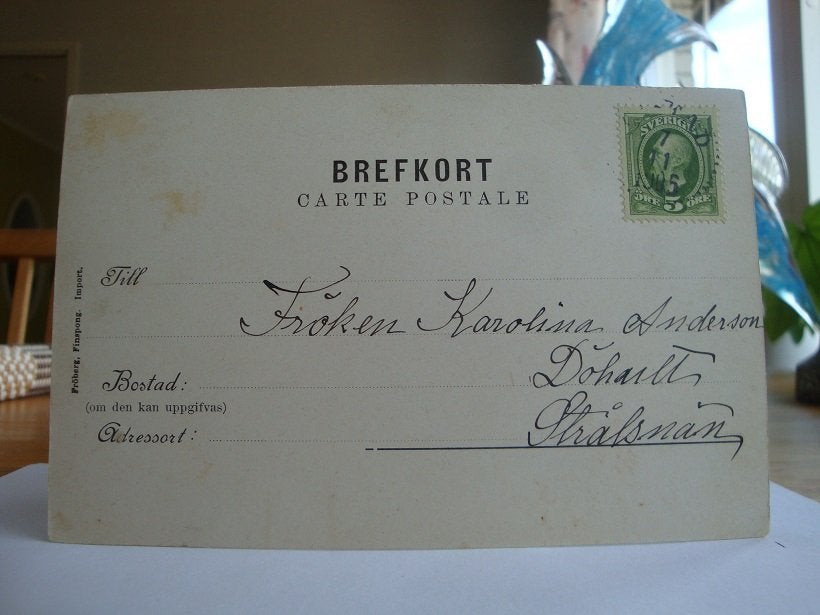 BREFKORT
CARTE POSTALE
SVERIGE
7
11
1905
ÖRE 5 ÖRE
Till
Fröken Karolina Anderson
Döhult
Strålsnän
Bostad:
(om den kan uppgifvas)
Adressort:
Fröberg, Finspong. Import.